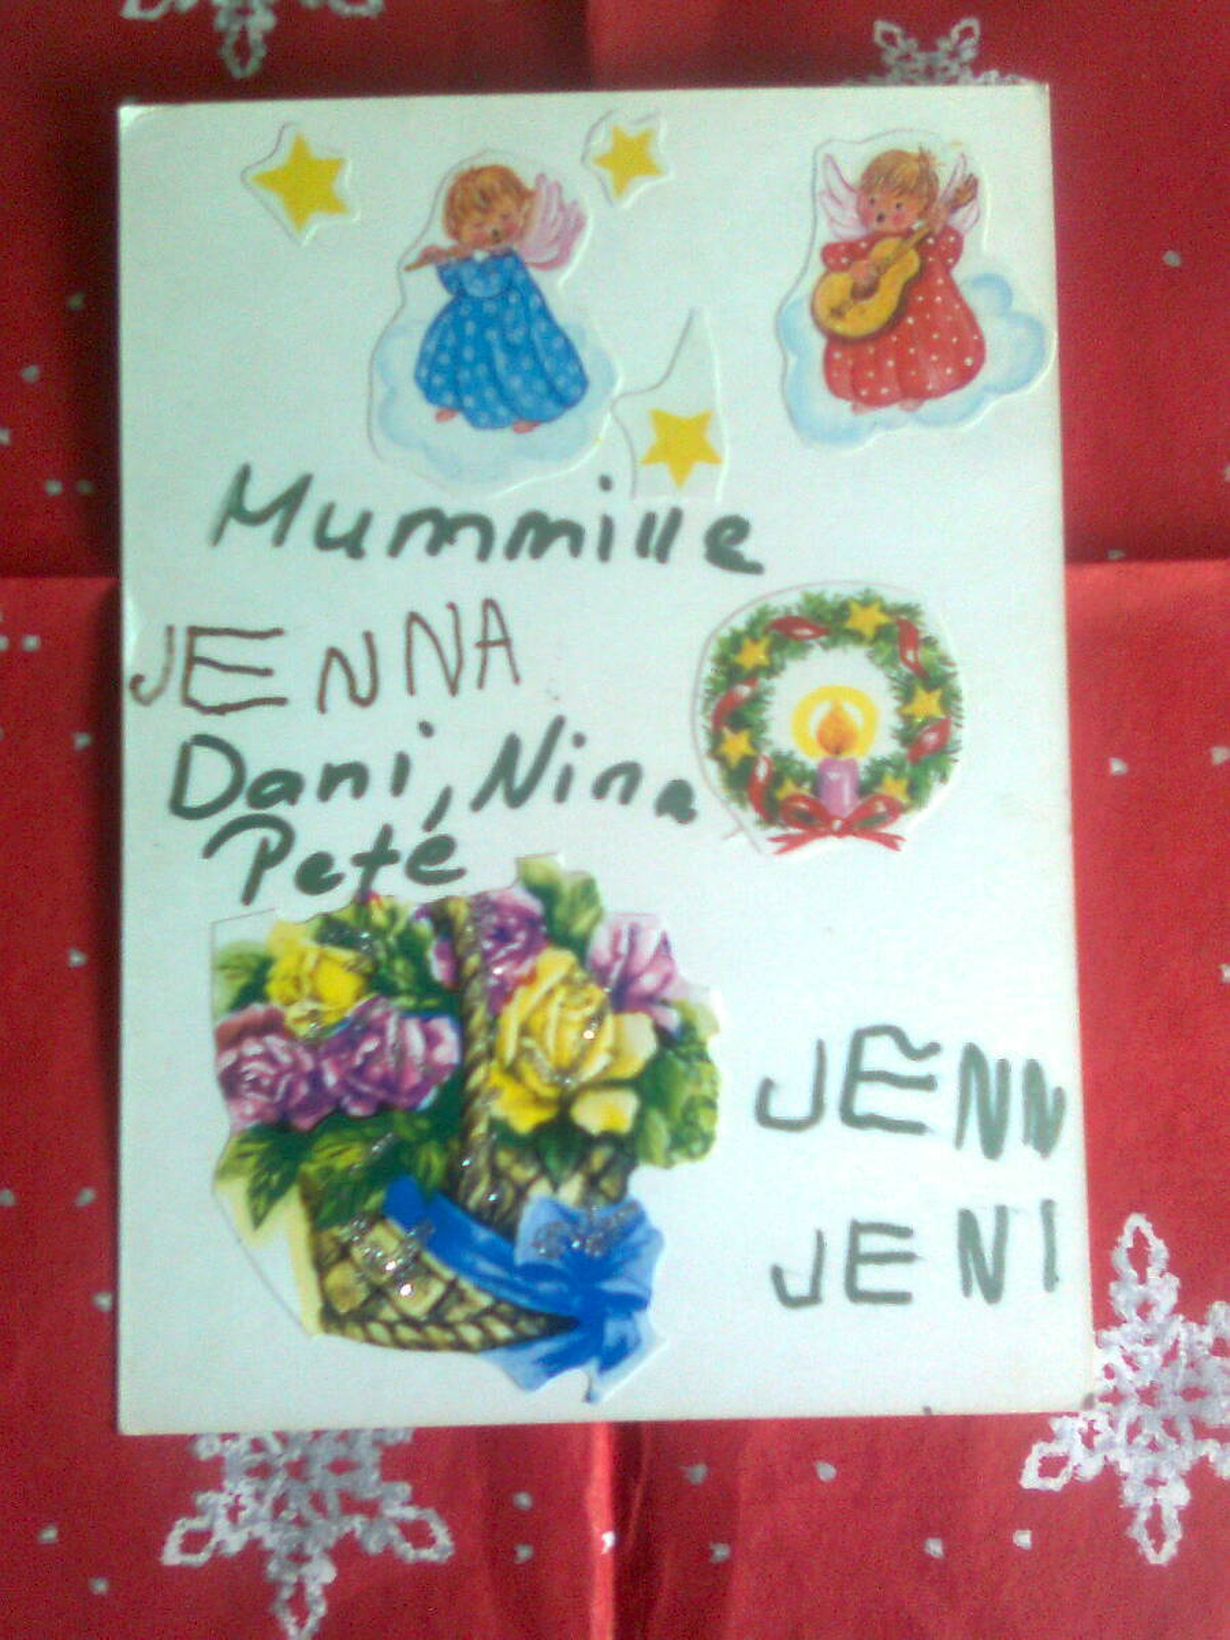 Mummille
JENNA
Dani, Nina
Pete
JENN
JENI